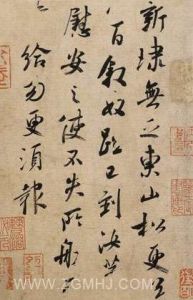 新埭無乏東山松更
百敘奴已到汝等
慰安之使不失所船
給勿更須報
WWW.ZGMHJ.COM